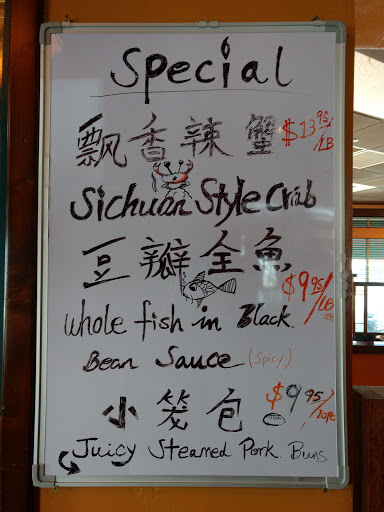 Special
飘香辣蟹 $13.95/LB
Sichuan Style Crab
豆瓣全魚 $9.95/LB
Whole fish in Black
Bean Sauce (Spicy)
小笼包 $9.95/10pc
Juicy Steamed Pork Buns